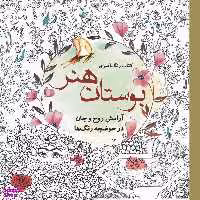 کتاب رنگ‌آمیزی
بوستان هنر
آرامش روح و جان
در حوضچه رنگ‌ها